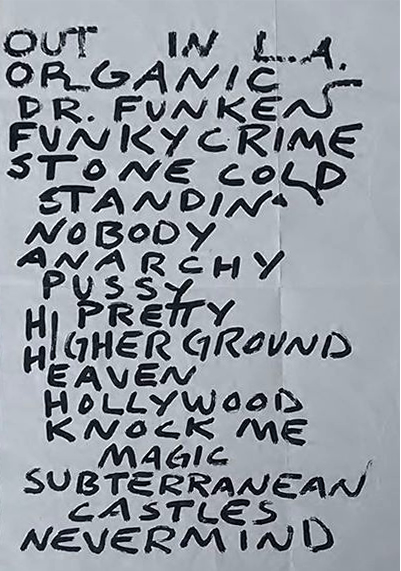 OUT IN L.A.
ORGANIC
DR. FUNKENS
FUNKYCRIME
STONE COLD
STANDIN'
NOBODY
ANARCHY
PUSSY
PRETTY
HIGHER GROUND
HEAVEN
HOLLYWOOD
KNOCK ME
MAGIC
SUBTERRANEAN
CASTLES
NEVERMIND